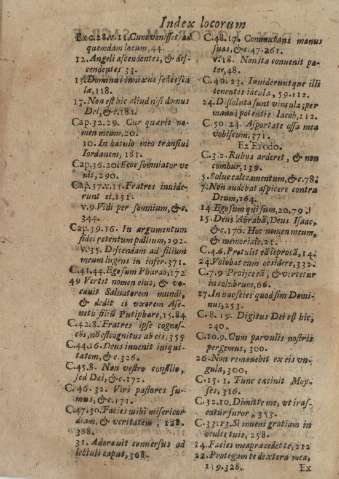 Index locorum
Ex c.28.v.11. Cum venisset ad
quemdam locum, 44.
12. Angeli ascendentes, & des-
cendentes 33.
13. Dominus innixus
la, 118.
17. Non est hic aliud nisi domus
Dei, &c. 181.
Cap. 32.29. Cur quæris no-
men meum, 20.
10. In baculo meo transivi
Iordanem, 161.
Cap. 36.20. Ecce somniator ve
nit, 290.
Cap. 37.v.11. Fratres invide-
runt ei, 151.
v.9. Vidi per somnium, &c.
344.
Cap. 39.16. In argumentum
fidei retentum pallium, 292.
v.35. Descendam ad filium
meum lugens in infer. 371.
C.41.44. Ego sum Pharao, 172
49 Vertit nomen eius, & vo-
cavit Salvatorem mundi,
& dedit ei uxorem Ase-
neth filiā Putipharæ, 15.84
C.42.8. Fratres ipse cognos-
cēs, nō est cognitus ab eis, 355
C.44.16. Deus invenit iniqui-
tatem, & c. 326.
C.45.8. Non vestro consilio,
sed Dei, &c. 172.
C.46.32. Viri pastores su-
mus, &c. 172.
C.47.30. Facies mihi misericor
diam, & veritatem, 128.
388.
31. Adoravit conversus ad
lectuli caput, 308.
C.48.17. Commutans manus
suas, &c. 47.261.
v.18. Non ita convenit pa-
ter, 48.
C.49.23. Invideruntque illi
tenentes iacula, 59.112.
24. Dissoluta sunt vincula; per
manus potentis Iacob, 112.
C.50.24. Asportate ossa mea
vobiscum, 371.
EX EXODO.
C.3.2. Rubus arderet, & non
comburebatur, 139.
5. Solve calceamentum, &c. 78.
7. Non audebat aspicere contra
Deum, 164.
14 Ego sum qui sum, 20, 79.
15. Deus Abrahā, Deus Isaac,
&c. 176. Hoc nomen meum,
& memoriale, 21.
C.4.6. Protulit
24. Volebat eum occidere, 332.
C.7.9. Proijcere, & vertetur
in colubrum, 66.
17. In quo scies quod sim Domi-
nus, 253.
C.8.19. Digitus Dei est hic,
240.
C.10.9. Cum parvulis nostris
pergemus, 300.
26. Non remanebit ex eis vn-
gula, 300.
C.15.1. Tunc cecinit Moy-
ses, 316.
C.32.10. Dimitte me, vt iras-
catur furor, 353.
C.33.13. Si inveni gratiam in
oculis tuis, 258.
14. Facies mea præcedet te, 212
22. Protegam te dextera mea,
119.326. Ex